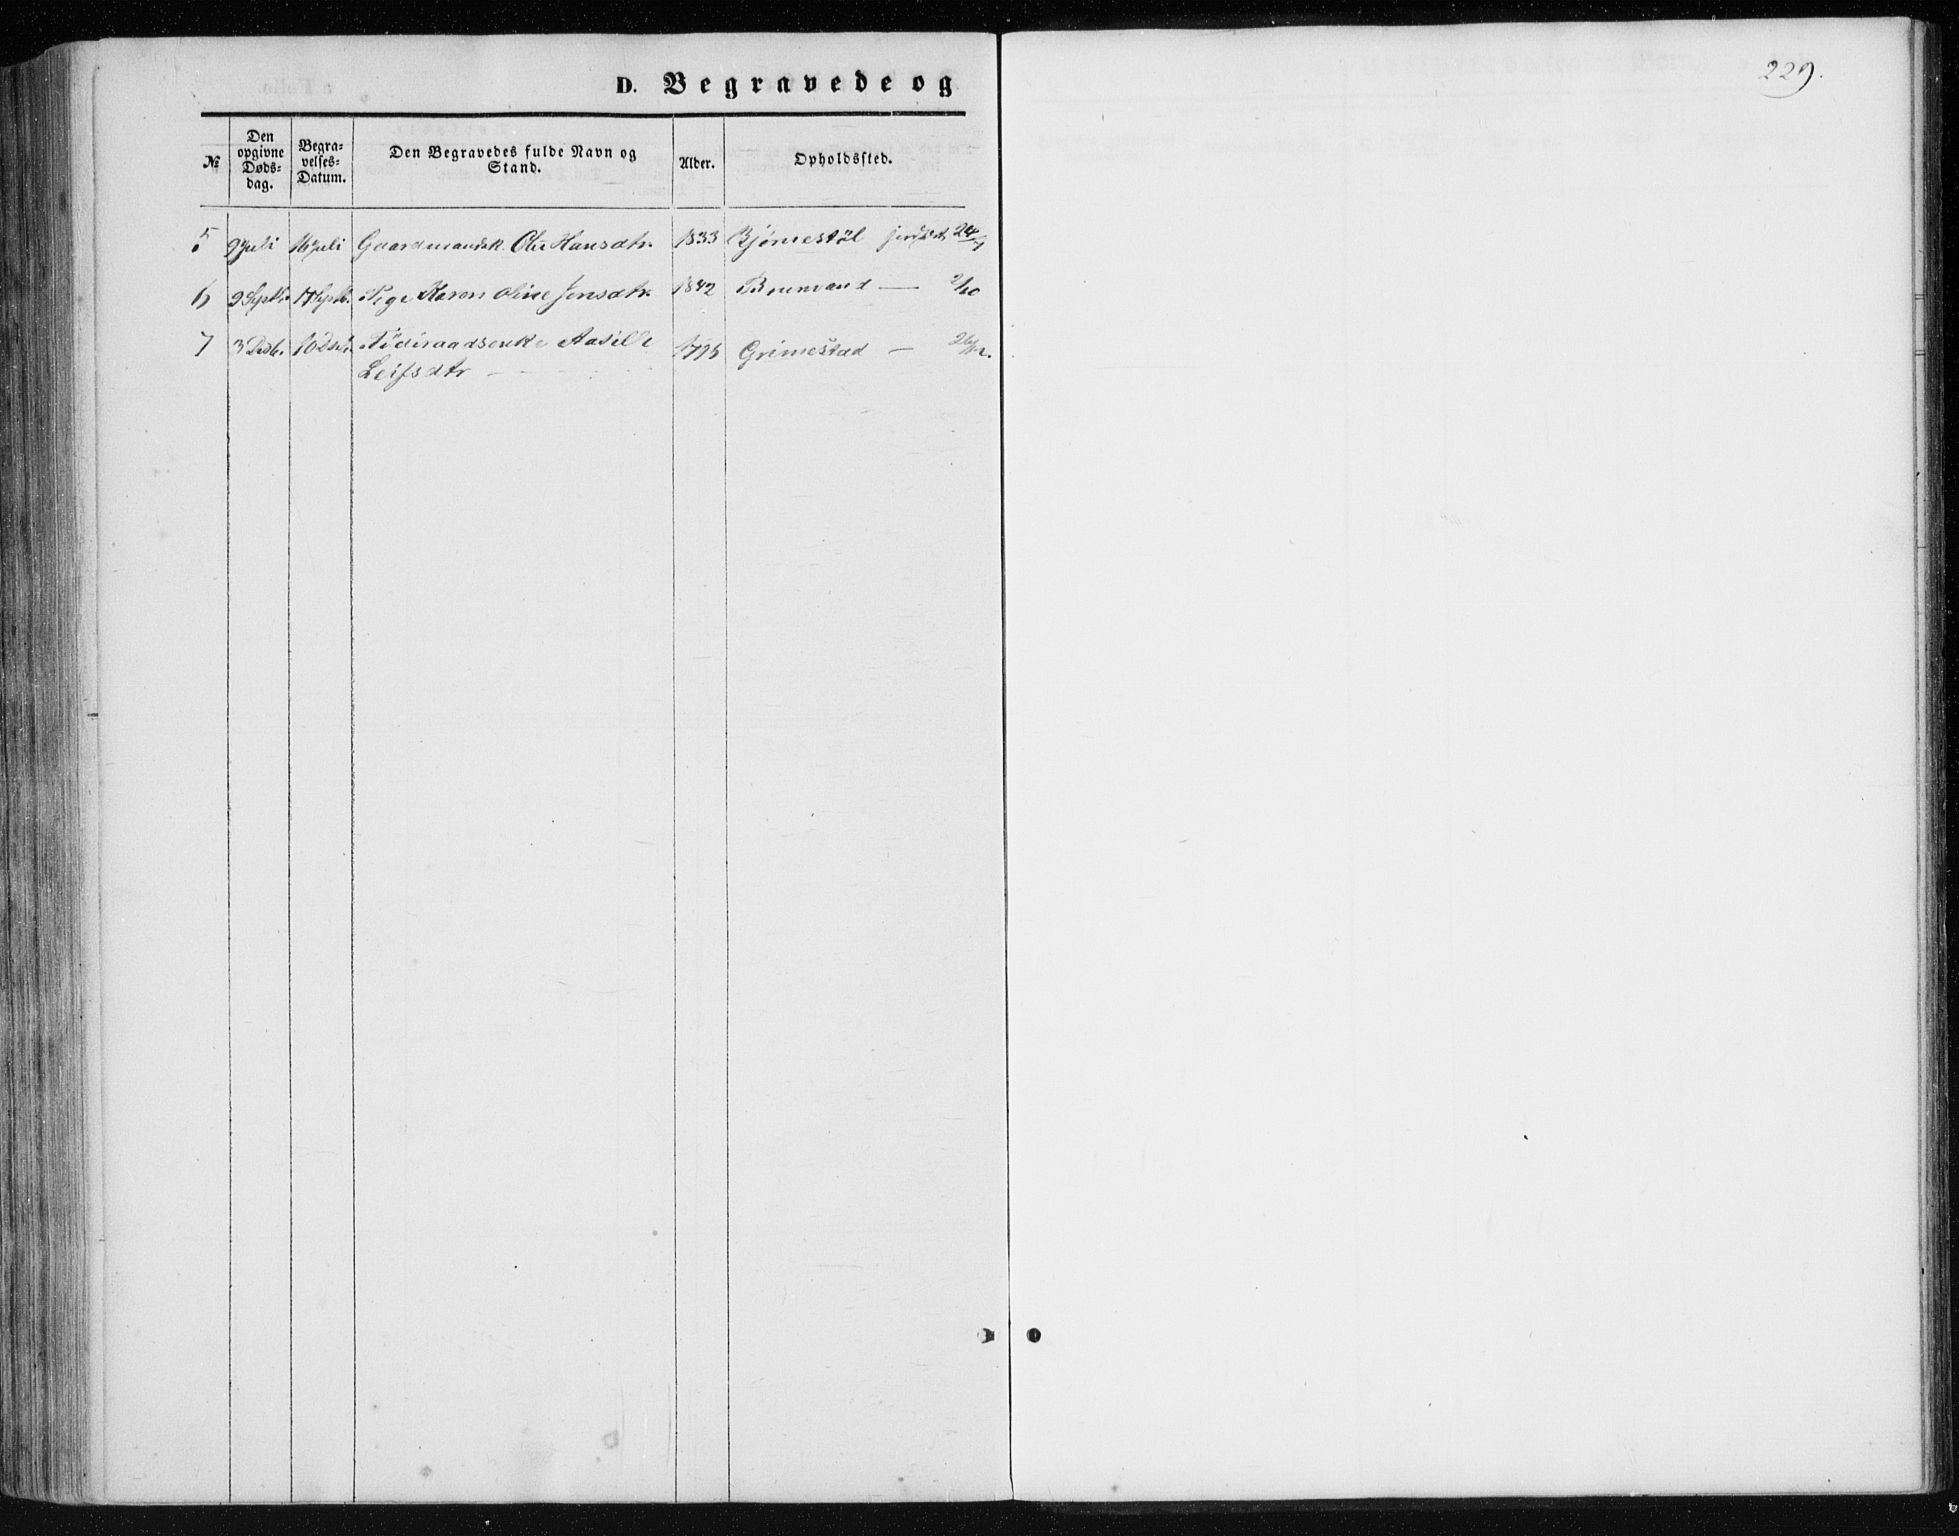 229.
D. Begravede og
№ Den opgivne Døds-dag. Begra-velses-Datum. Den Begravedes fulde Navn og Stand. Alder. Opholdssted.
5 9 Juli 16 Juli Gaardmandsk. Hansdtr. 1833 Bjørnestøl 24/7
6 9 Septb. 17 Septb. Pige Karen Oline Jensdtr. 1842 — 2/10
7 3 Decb. 10 Decb. Føderaadsenke Aasille 1775 Grimestad — 26/12.
Leifsdtr —